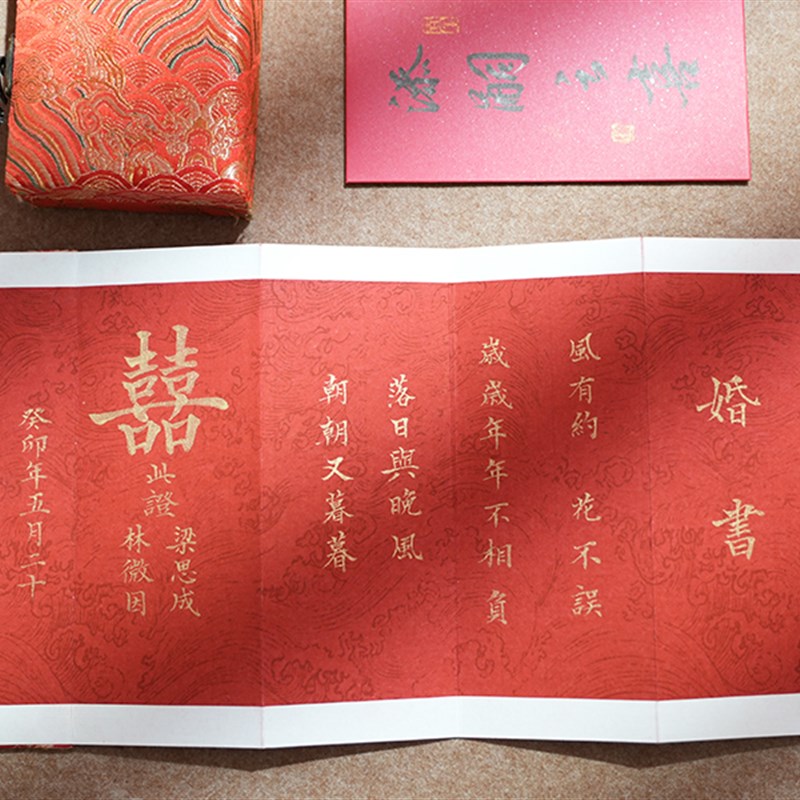 婚書
風有約 花不誤
歲歲年年不相負
落日與晚風
朝朝又暮暮
囍
此證
梁思成
林徽因
癸卯年五月二十